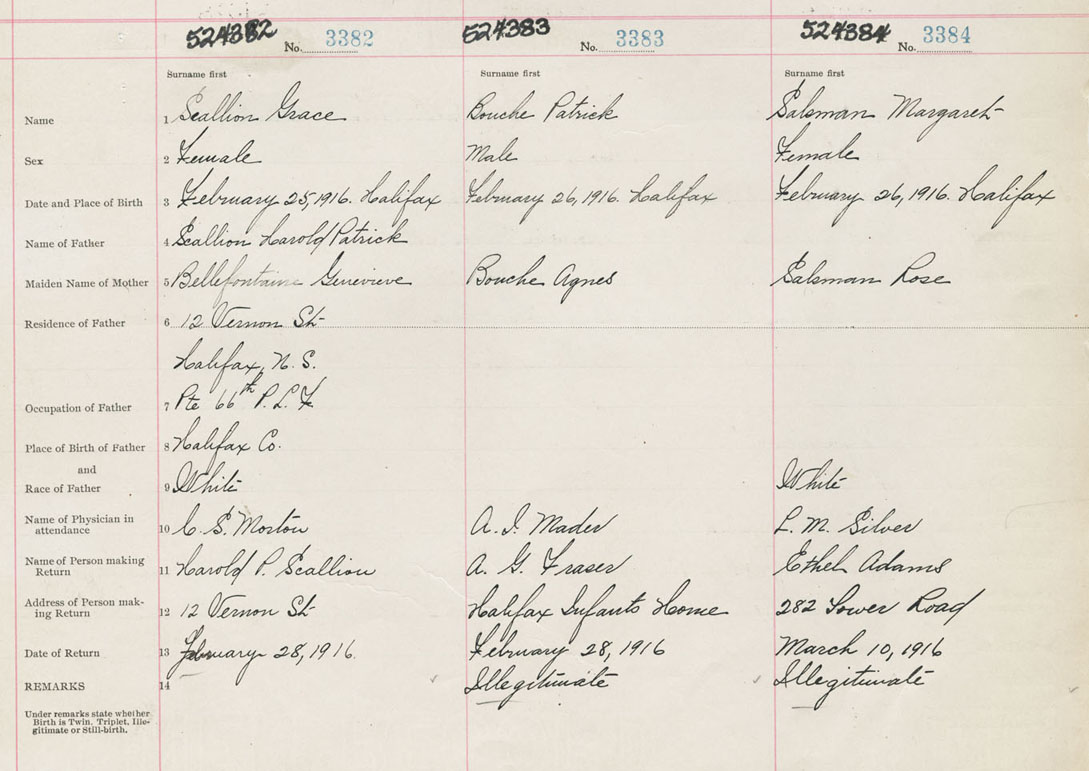 524382 No. 3382 524383 No. 3383 524384 No. 3384
Surname first Surname first Surname first
Name 1 Scallion Grace Bouche Patrick Salsman Margaret
Sex 2 Female Male Female
Date and Place of Birth 3 February 25, 1916. Halifax February 26, 1916. Halifax February 26, 1916. Halifax
Name of Father 4 Scallion Harold Patrick
Maiden Name of Mother 5 Bellefontaine Genevieve Bouche Agnes Salsman Rose
Residence of Father 6 12 Vernon St
Halifax, N. S.
Occupation of Father 7 Pte 66th P. L. F
Place of Birth of Father 8 Halifax Co.
and
Race of Father 9 White White
Name of Physician in
attendance 10 C. S. Morton A. I. Mader L. M. Silver
Name of Person making
Return 11 Harold P. Scallion A. G. Fraser Ethel Adams
Address of Person mak-
ing Return 12 12 Vernon St Halifax Infants Home 282 Tower Road
Date of Return 13 February 28, 1916. February 28, 1916 March 10, 1916
REMARKS 14 Illegitimate Illegitimate
Under remarks state whether
Birth is Twin, Triplet, Ille-
gitimate or Still-birth.